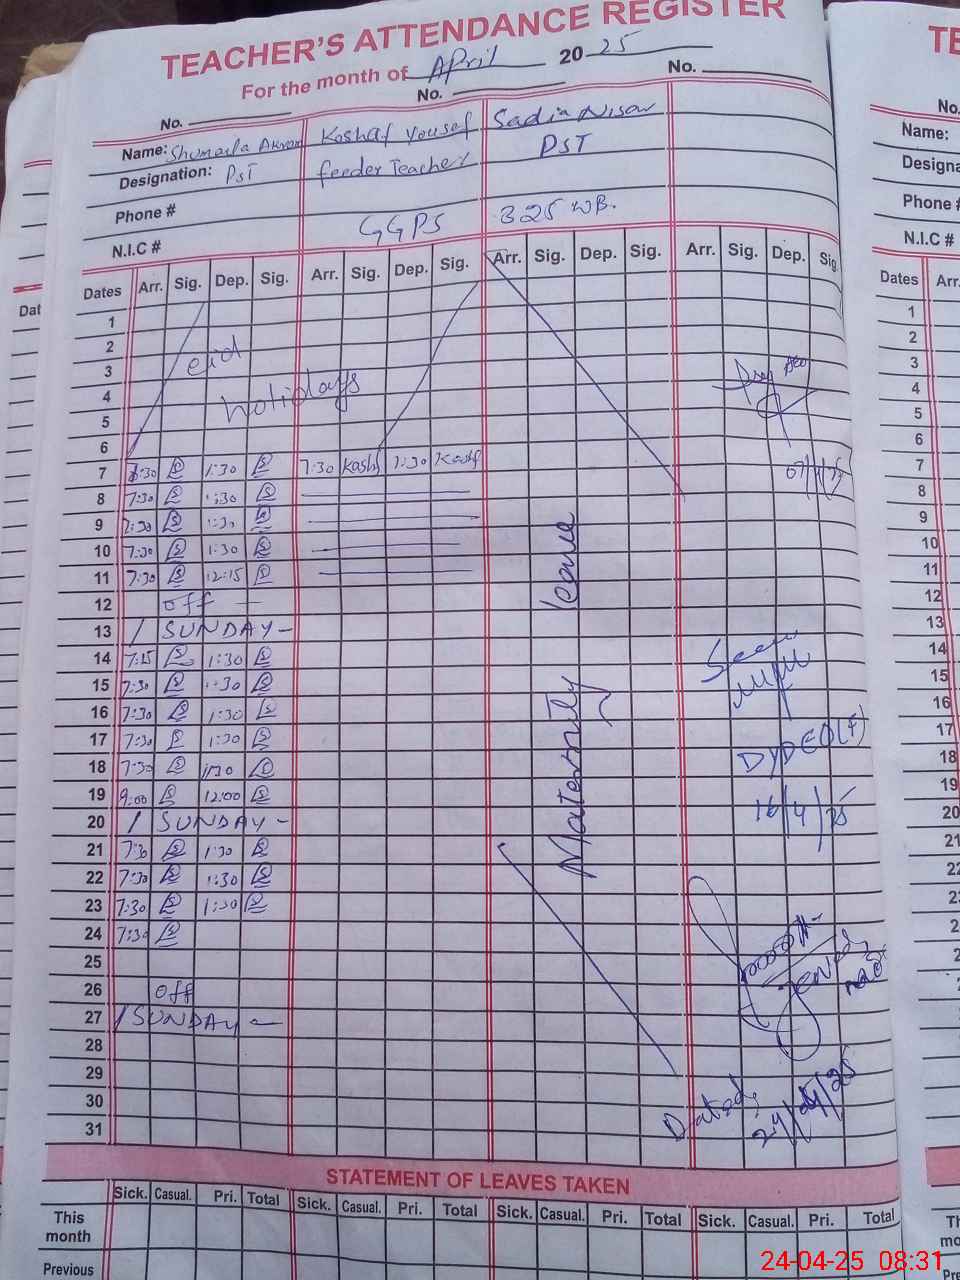 TEACHER'S ATTENDANCE REGISTER
For the month of April 2025
No. No. No.
Name: Shumaila Akram Koshaf Yousaf Sadia Nisar
Designation: PST feeder Teacher PST
Phone #
N.I.C # GGPS 325 WB.
Dates Arr. Sig. Dep. Sig. Arr. Sig. Dep. Sig. Arr. Sig. Dep. Sig. Arr. Sig. Dep. Sig.
1
2
3 eid
4 holidays
5
6
7 7:30 1:30 7:30 Kashf 1:30 Kashf
8 7:30 1:30
9 7:30 1:30
10 7:30 1:30
11 7:30 12:15
12 off
13 / SUNDAY -
14 7:15 1:30
15 7:30 1:30
16 7:30 1:30
17 7:30 1:30
18 7:30 1:30
19 9:00 12:00
20 / SUNDAY -
21 7:30 1:30
22 7:30 1:30
23 7:30 1:30
24 7:30
25
26 off
27 / SUNDAY -
28
29
30
31
Maternity leave
Seen
DYDEO(F)
16/4/25
Dated:
24/04/25
STATEMENT OF LEAVES TAKEN
Sick. Casual. Pri. Total Sick. Casual. Pri. Total Sick. Casual. Pri. Total Sick. Casual. Pri. Total
This month
Previous
No.
Name:
Phone #
N.I.C #
Dates Arr.
1
2
3
4
5
6
7
8
9
10
11
12
13
14
15
16
17
18
19
20
21
24-04-25 08:31